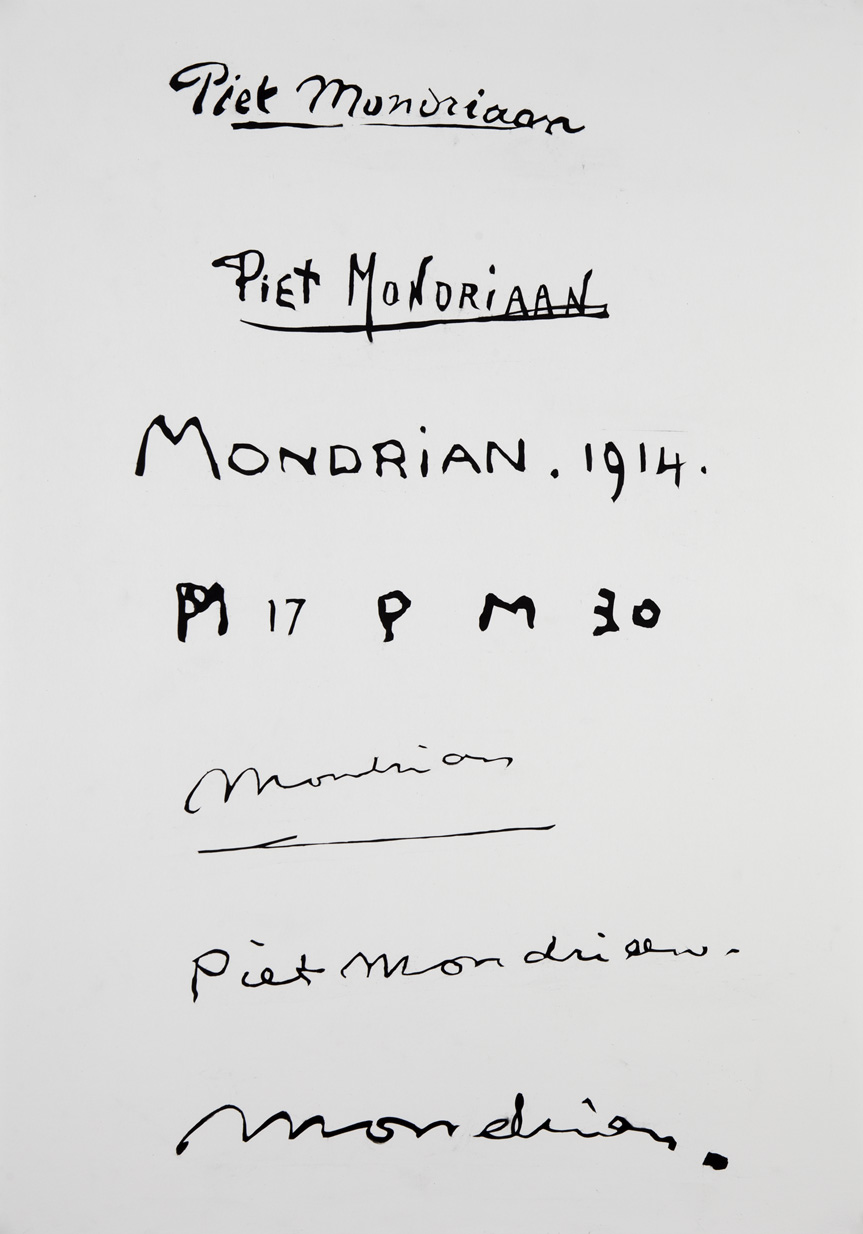 Piet Mondriaan
PiET MONDRiAAN
MONDRiAN. 1914.
PM 17 P M 30
Mondrian
Piet Mondriaan.
Mondrian.